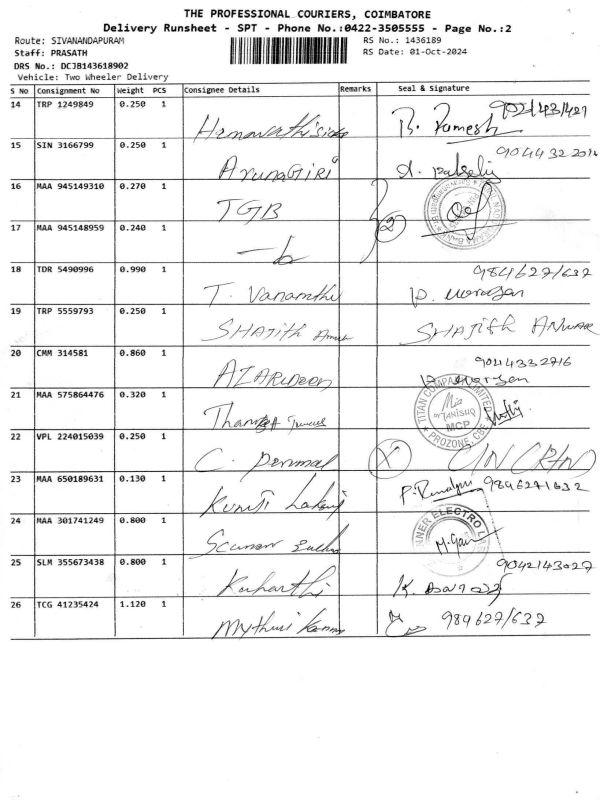 THE PROFESSIONAL COURIERS, COIMBATORE
Delivery Runsheet - SPT - Phone No.:0422-3505555 - Page No.:2
Route: SIVANANDAPURAM
RS No.: 1436189
Staff: PRASATH
RS Date: 01-Oct-2024
DRS No.: DCJB143618902
Vehicle: Two Wheeler Delivery
S No Consignment No Weight PCS Consignee Details Remarks Seal & Signature
14 TRP 1249849 0.250 1 R. Ramesh
15 SIN 3166799 0.250 1 ArunaGIRI
16 MAA 945149310 0.270 1 TGB
17 MAA 945148959 0.240 1 2
18 TDR 5490996 0.990 1 T. Vanamthi 984627/632
19 TRP 5559793 0.250 1 SHAJITH SHAJITH ANWAR
20 CMM 314581 0.860 1 AZARUDEEN 9044332716
21 MAA 575864476 0.320 1 TITAN COMPANY LIMITED TANISHQ MCP PROZONE, CBE
22 VPL 224015039 0.250 1 C. Perumal X
23 MAA 650189631 0.130 1 9846271632
24 MAA 301741249 0.800 1 ELECTRO
25 SLM 355673438 0.800 1 9042143027
26 TCG 41235424 1.120 1 984627/632